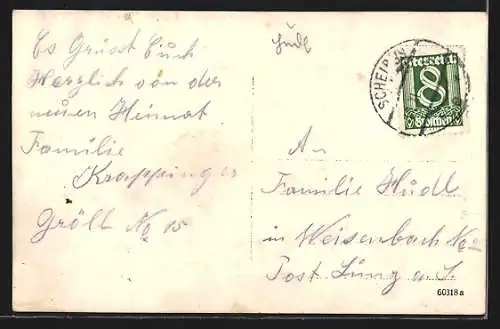 Es Grüsst Euch
Herzlich von der
neuen Heimat
Familie
Krappinger
Gröll No 15
Hüdl
SCHEIBBS
Österreich
8
Groschen
An
Familie Hüdl
in Weisenbach No
Post Lunz a. S.
60318a